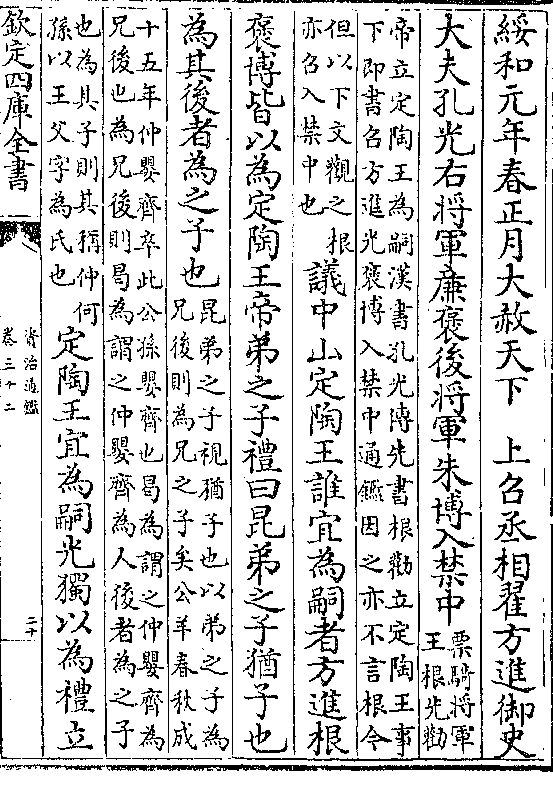 綏和元年春正月大赦天下　上召丞相翟方進御史
大夫孔光右將軍廉褒後將軍朱博入禁中
票騎將軍
王根先勸
帝立定陶王為嗣漢書孔光傳先書根勸立定陶王事
下即書召方進光褒博入禁中通鑑因之亦不言根今
但以下文觀之根
亦召入禁中也
議中山定陶王誰宜為嗣者方進根
褒博皆以為定陶王帝弟之子禮曰昆弟之子猶子也
為其後者為之子也
昆弟之子視猶子也以弟之子為
兄後則為兄之子矣公羊春秋成
十五年仲嬰齊卒此公孫嬰齊也曷為謂之仲嬰齊為
兄後也為兄後則曷為謂之仲嬰齊為人後者為之子
也為其子則其稱仲何
孫以王父字為氏也
定陶王宜為嗣光獨以為禮立
欽定四庫全書
資治通鑑
卷三十二
二十